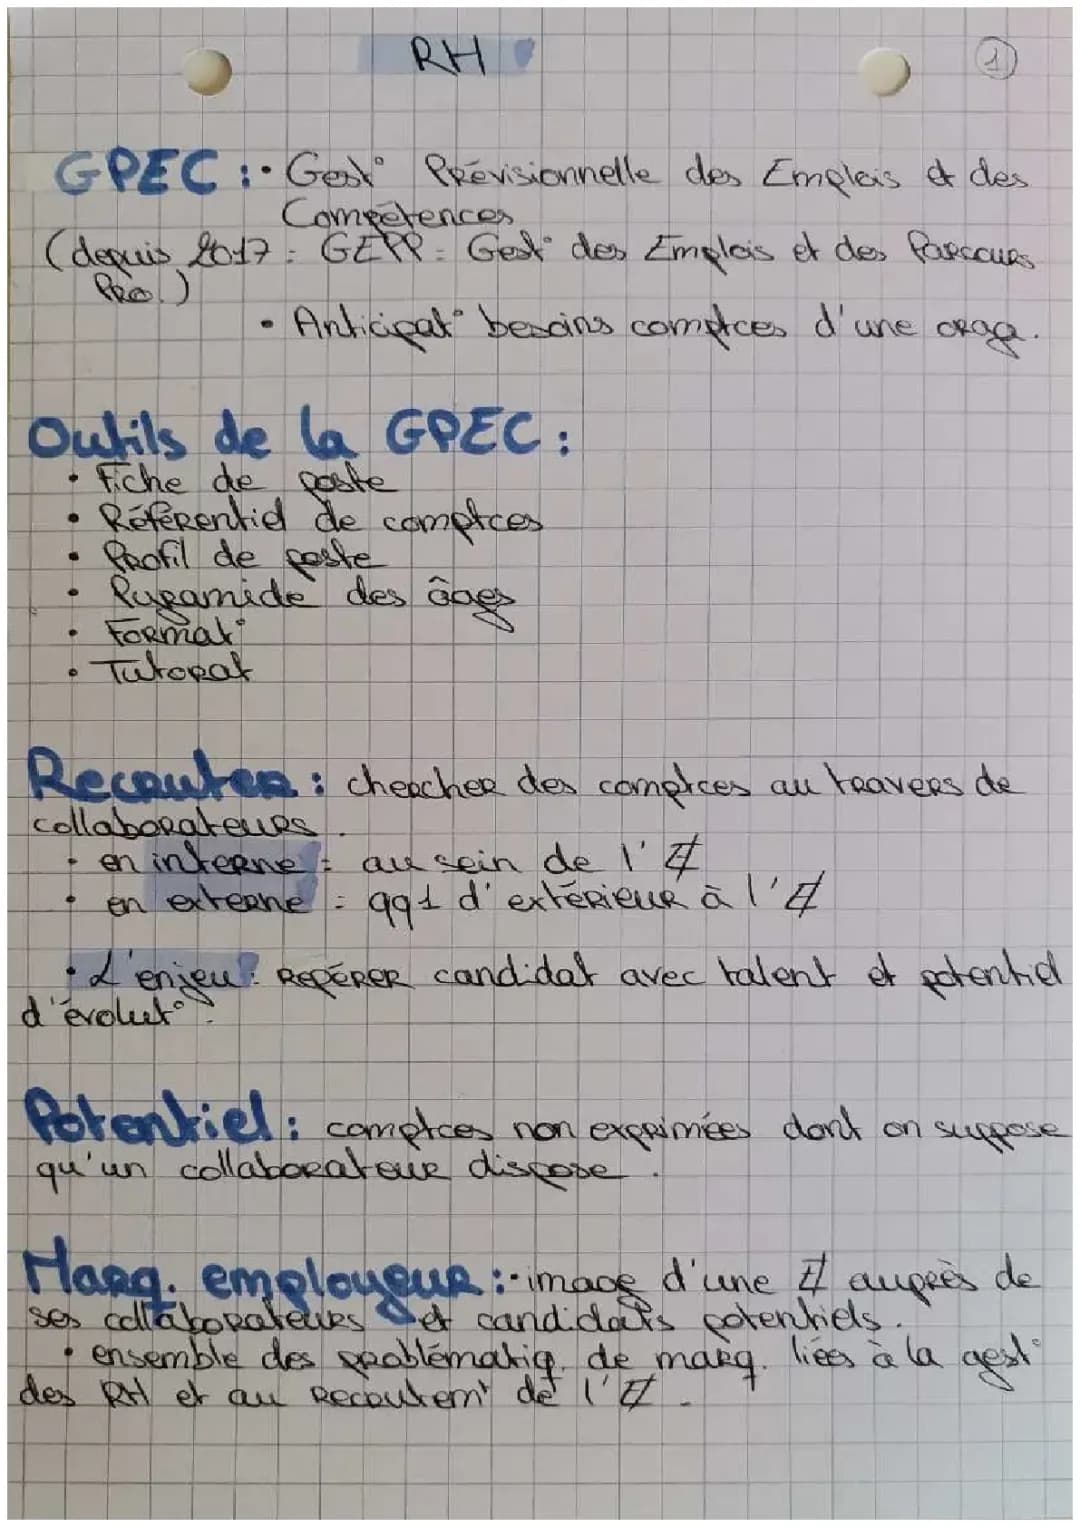 RH
1
GPEC : • Gest° Prévisionnelle des Emplois et des
Compétences
(depuis 2017 : GEPP = Gest° des Emplois et des Parcours
Pro.)
• Anticipat° besoins comptces d'une orga.
Outils de la GPEC :
• Fiche de poste
• Référentiel de comptces
• Profil de poste
• Pyramide des âges
• Format°
• Tutorat
Recruter : chercher des comptces au travers de
collaborateurs.
• en interne = au sein de l'E
• en externe = qq1 d'extérieur à l'E
• L'enjeu : REPÉRER candidat avec talent et potentiel
d'évolut°.
Potentiel : comptces non exprimées dont on suppose
qu'un collaborateur dispose.
Marq. employeur : • image d'une E auprès de
ses collaborateurs et candidats potentiels.
• ensemble des problématiq. de marq. liées à la gest°
des RH et au recrutemt de l'E.